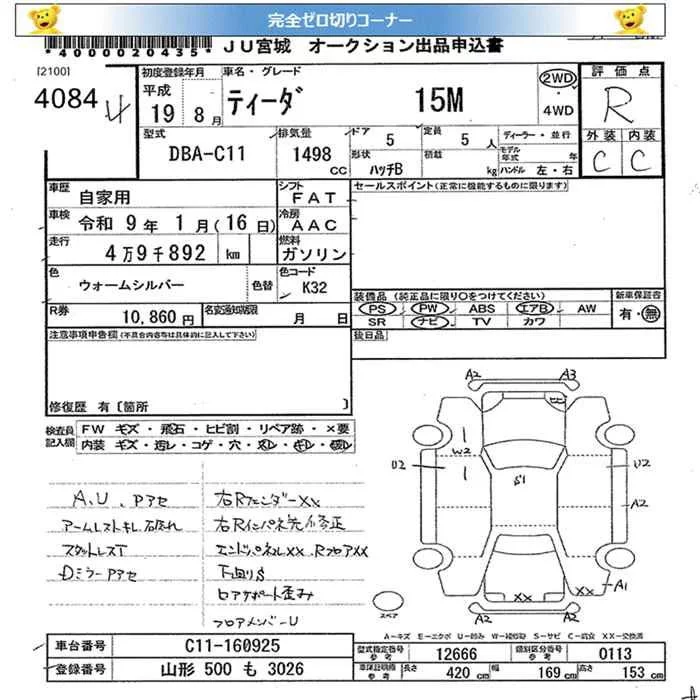 完全ゼロ切りコーナー
*4000020435* JU宮城 オークション出品申込書
[2100]
4084
初度登録年月 平成 19 8月
車名・グレード
ティーダ 15M
2WD・4WD
評価点
R
外装 内装
C C
型式 DBA-C11
排気量 1498 CC
ドア 5
形状 ハッチB
定員 5 人
積載 kg
ディーラー・並行
モデル年式 年
ハンドル 左・右
車歴 自家用
シフト FAT
セールスポイント(正常に機能するものに限ります)
車検 令和 9年 1月(16日)
冷房 AAC
走行 4万9千892 km
燃料 ガソリン
色 ウォームシルバー 色替
色コード K32
R券 10,860円
名変通知期限 月 日
装備品(純正品に限り○をつけてください)
PS PW ABS エアB AW
SR ナビ TV カワ
新車保証書
有・無
後日品
注意事項申告欄(不具合内容等は具体的に記入して下さい)
修復歴 有〔箇所 〕
検査員記入欄
FW キズ・飛石・ヒビ割・リペア跡・×要
内装 キズ・汚レ・コゲ・穴・スレ・キレ・破レ
A.U.Pアセ
アームレストキレ破れ
スタットレスT
Dミラーアセ
右RフェンダーXX
右Rインパネ先修正
エンドパネルXX.RフロアXX
下回りS
ロアサポート歪み
フロアメンバーU
A2 A3
W2
U2 S1 U2
A2
XX XX A1
A2 A2
スペア
A-キズ E-エクボ U-凹み W-補修跡 S-サビ C-腐食 XX-交換済
車台番号 C11-160925
登録番号 山形 500 も 3026
型式指定番号 参考 12666
類別区分番号 参考 0113
車両証明書 参考 長さ 420 cm 幅 169 cm 高さ 153 cm